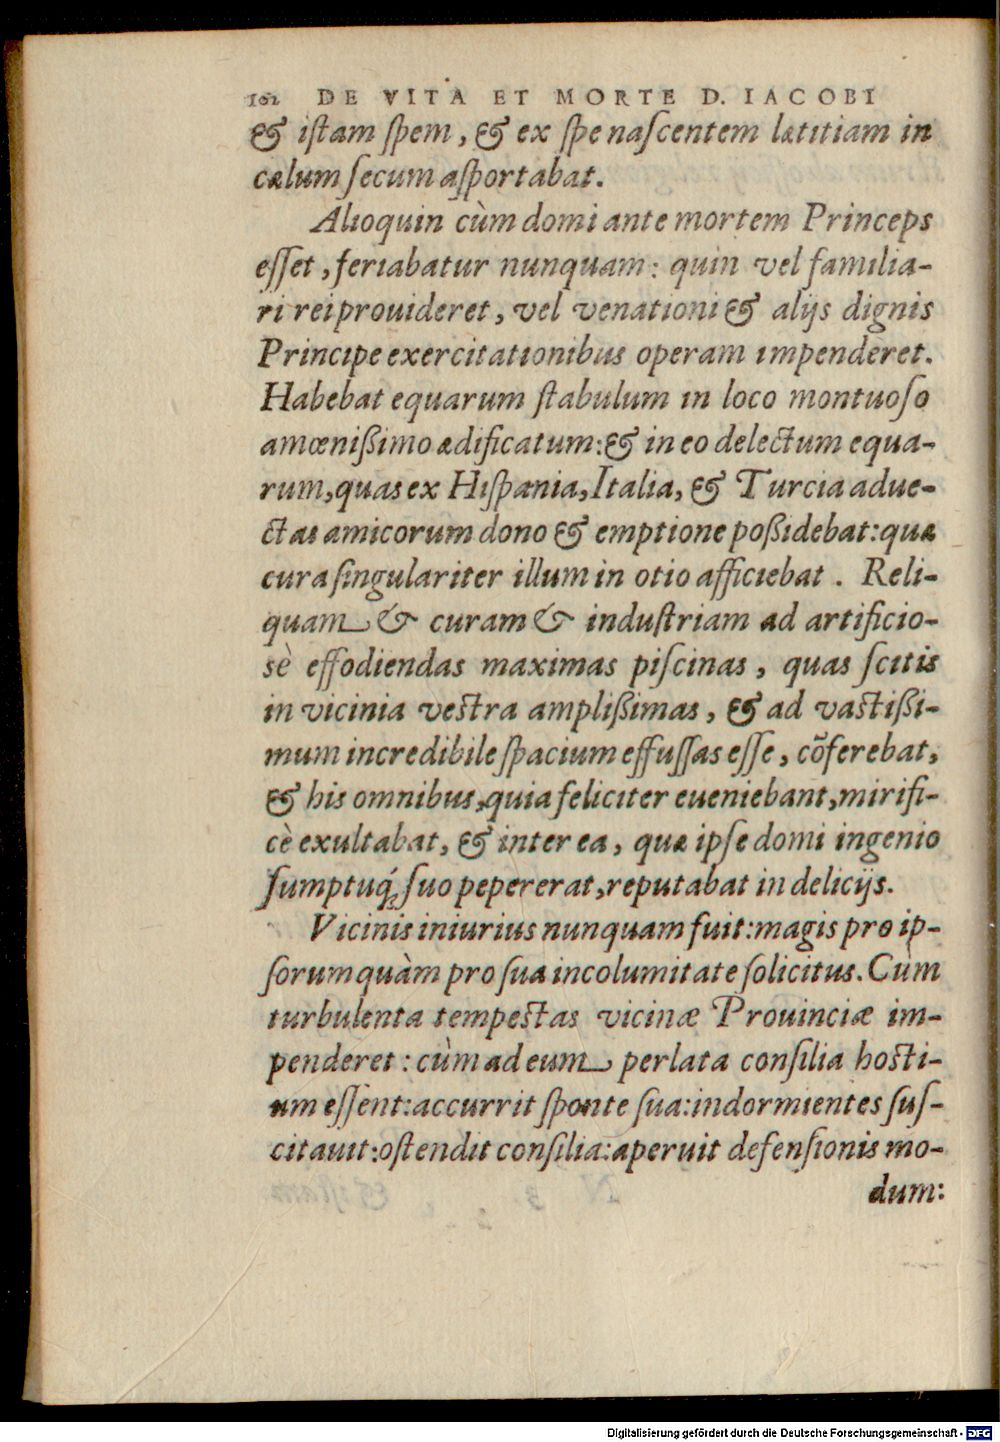 102 DE VITA ET MORTE D. IACOBI
& istam spem, & ex spe nascentem lætitiam in
cælum secum asportabat.
Alioquin cùm domi ante mortem Princeps
esset, feriabatur nunquam: quin vel familia-
ri rei prouideret, vel venationi & alijs dignis
Principe exercitationibus operam impenderet.
Habebat equarum stabulum in loco montuoso
amœnißimo ædificatum: & in eo delectum equa-
rum, quas ex Hispania, Italia, & Turcia adue-
ctas amicorum dono & emptione poßidebat: quæ
cura singulariter illum in otio afficiebat. Reli-
quam & curam & industriam ad artificio-
sè effodiendas maximas piscinas, quas scitis
in vicinia vestra amplißimas, & ad vastißi-
mum incredibile spacium effussas esse, cõferebat,
& his omnibus, quia feliciter eueniebant, mirifi-
cè exultabat, & inter ea, quæ ipse domi ingenio
sumptuq́; suo pepererat, reputabat in delicijs.
Vicinis iniurius nunquam fuit: magis pro ip-
sorum quàm pro sua incolumitate solicitus. Cùm
turbulenta tempestas vicinæ Prouinciæ im-
penderet: cùm ad eum perlata consilia hosti-
um essent: accurrit sponte sua: indormientes sus-
citauit: ostendit consilia: aperuit defensionis mo-
dum:
Digitalisierung gefördert durch die Deutsche Forschungsgemeinschaft - DFG